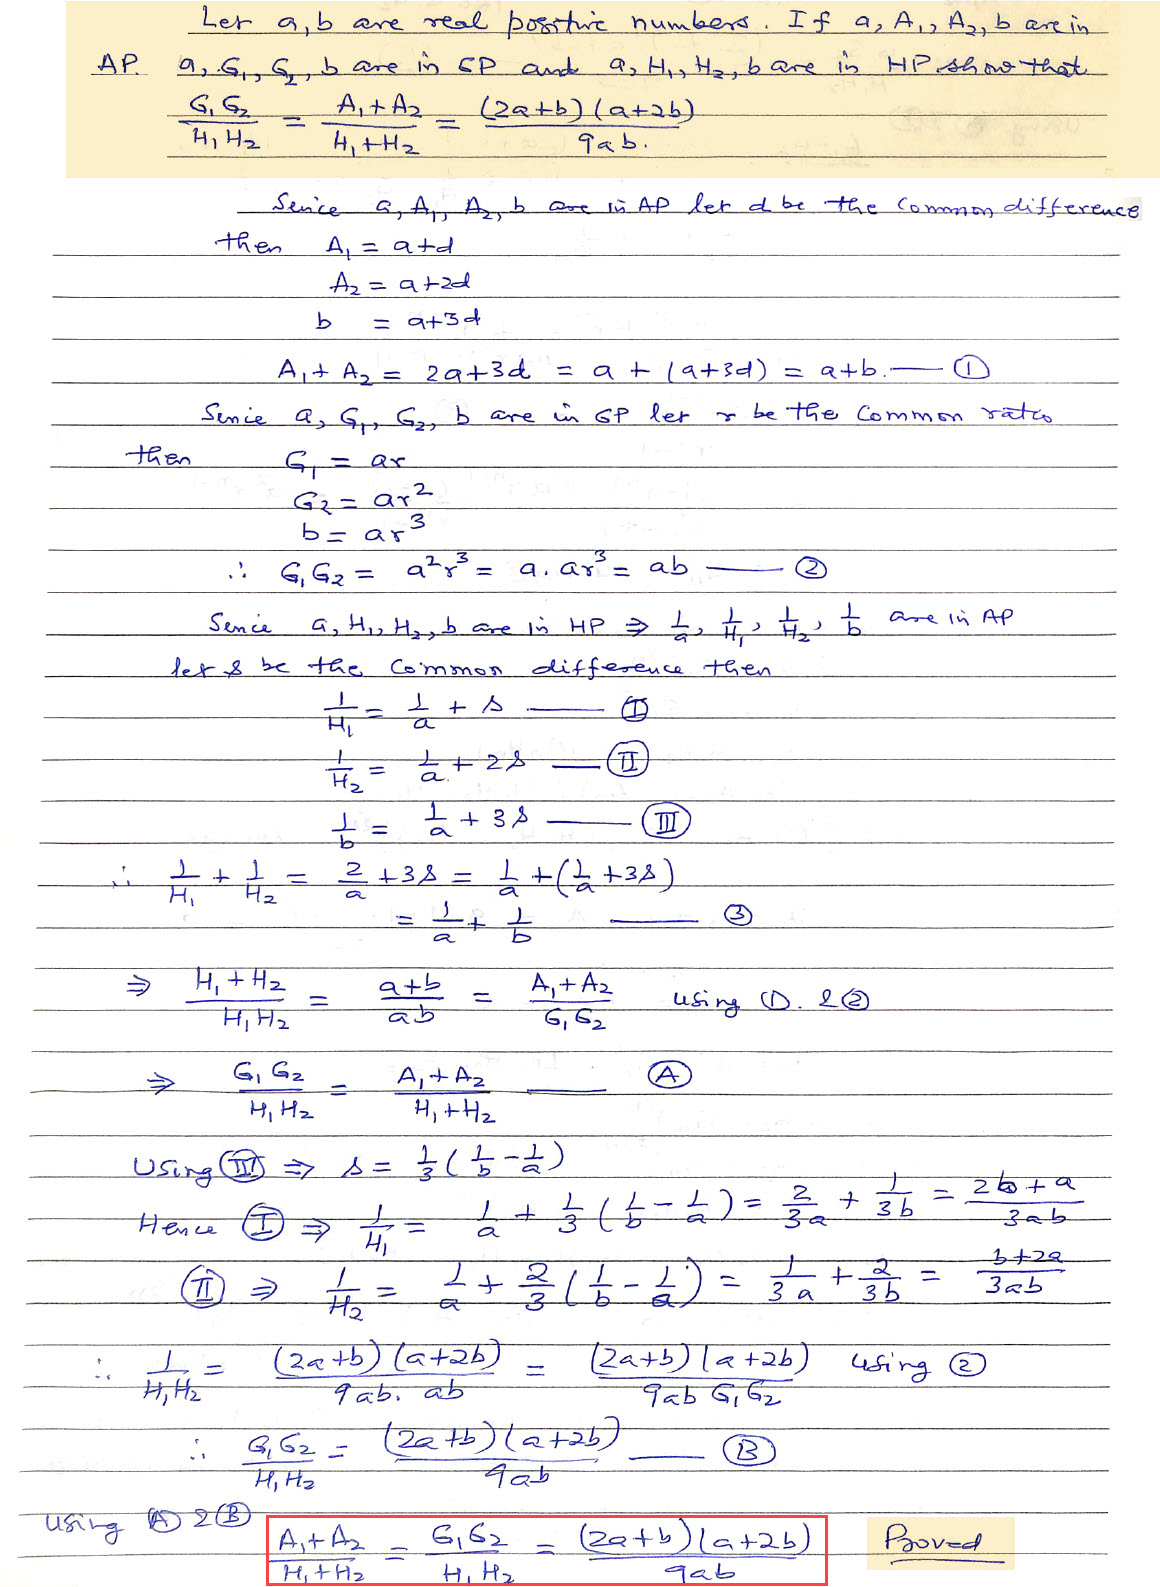 Let a, b are real positive numbers. If a, A₁, A₂, b are in
AP. a, G₁, G₂, b are in GP and a, H₁, H₂, b are in HP show that
G₁G₂/H₁H₂ = (A₁+A₂)/(H₁+H₂) = (2a+b)(a+2b)/9ab.
Senice a, A₁, A₂, b are in AP let d be the common difference
then A₁ = a+d
A₂ = a+2d
b = a+3d
A₁+A₂ = 2a+3d = a + (a+3d) = a+b. — ①
Senie a, G₁, G₂, b are in GP let r be the common ratio
then G₁ = ar
G₂ = ar²
b = ar³
∴ G₁G₂ = a²r³ = a.ar³ = ab — ②
Senie a, H₁, H₂, b are in HP ⇒ 1/a, 1/H₁, 1/H₂, 1/b are in AP
let s be the common difference then
1/H₁ = 1/a + s — Ⅰ
1/H₂ = 1/a + 2s — Ⅱ
1/b = 1/a + 3s — Ⅲ
∴ 1/H₁ + 1/H₂ = 2/a + 3s = 1/a + (1/a + 3s)
= 1/a + 1/b — ③
⇒ (H₁+H₂)/H₁H₂ = (a+b)/ab = (A₁+A₂)/G₁G₂ using ①. & ②
⇒ G₁G₂/H₁H₂ = (A₁+A₂)/(H₁+H₂) — Ⓐ
Using Ⅲ ⇒ s = 1/3(1/b − 1/a)
Hence Ⅰ ⇒ 1/H₁ = 1/a + 1/3(1/b − 1/a) = 2/3a + 1/3b = (2b+a)/3ab
Ⅱ ⇒ 1/H₂ = 1/a + 2/3(1/b − 1/a) = 1/3a + 2/3b = (b+2a)/3ab
∴ 1/H₁H₂ = (2a+b)(a+2b)/9ab.ab = (2a+b)(a+2b)/9ab G₁G₂ using ②
∴ G₁G₂/H₁H₂ = (2a+b)(a+2b)/9ab — Ⓑ
using Ⓐ & Ⓑ
(A₁+A₂)/(H₁+H₂) = G₁G₂/H₁H₂ = (2a+b)(a+2b)/9ab Proved